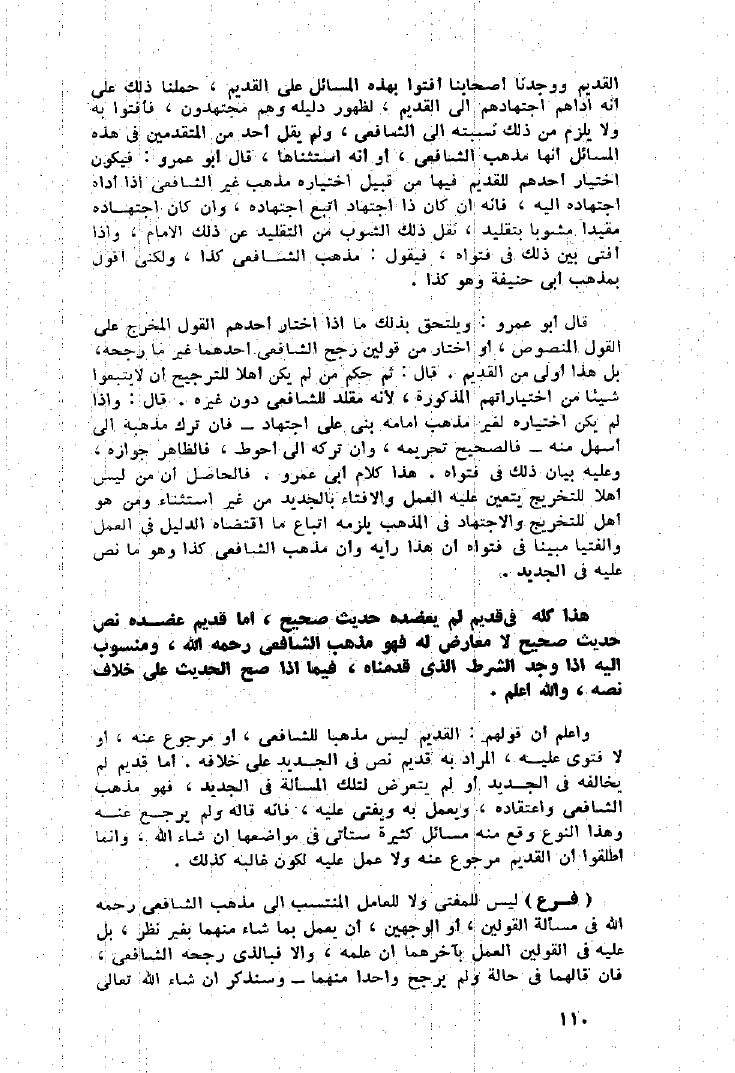 القديم ووجدنا أصحابنا أفتوا بهذه المسائل على القديم ، حملنا ذلك على
أنه أداهم اجتهادهم الى القديم ، لظهور دليله وهم مجتهدون ، فأفتوا به
ولا يلزم من ذلك نسبته الى الشافعى ، ولم يقل أحد من المتقدمين فى هذه
المسائل أنها مذهب الشافعى ، أو أنه استثناها ، قال أبو عمرو : فيكون
اختيار أحدهم للقديم فيها من قبيل اختياره مذهب غير الشافعى اذا أداه
اجتهاده اليه ، فانه ان كان ذا اجتهاد اتبع اجتهاده ، وان كان اجتهـاده
مقيدا مشوبا بتقليد ، نقل ذلك الشوب من التقليد عن ذلك الامام ، واذا
أفتى بين ذلك فى فتواه ، فيقول : مذهب الشـافعى كذا ، ولكنى أقول
بمذهب أبى حنيفة وهو كذا .
قال أبو عمرو : ويلتحق بذلك ما اذا اختار أحدهم القول المخرج على
القول المنصوص ، أو اختار من قولين رجح الشافعى أحدهما غير ما رجحه،
بل هذا أولى من القديم . قال : ثم حكم من لم يكن أهلا للترجيح أن لايتبعوا
شيئا من اختياراتهم المذكورة ، لأنه مقلد للشافعى دون غيره . قال : واذا
لم يكن اختياره لغير مذهب امامه بنى على اجتهاد ــ فان ترك مذهبة الى
أسهل منه ــ فالصحيح تحريمه ، وان تركه الى أحوط ، فالظاهر جوازه ،
وعليه بيان ذلك فى فتواه . هذا كلام أبى عمرو . فالحاصل أن من ليس
أهلا للتخريج يتعين عليه العمل والافتاء بالجديد من غير استثناء ومن هو
أهل للتخريج والاجتهاد فى المذهب يلزمه اتباع ما اقتضاه الدليل فى العمل
والفتيا مبينا فى فتواه أن هذا رأيه وأن مذهب الشافعى كذا وهو ما نص
عليه فى الجديد .
هذا كله فىقديم لم يعضده حديث صحيح ، أما قديم عضـده نص
حديث صحيح لا معارض له فهو مذهب الشافعى رحمه الله ، ومنسوب
اليه اذا وجد الشرط الذى قدمناه ، فيما اذا صح الحديث على خلاف
نصه ، والله أعلم .
واعلم أن قولهم : القديم ليس مذهبا للشافعى ، أو مرجوع عنه ، أو
لا فتوى عليـه ، المراد به قديم نص فى الجـديد على خلافه . أما قديم لم
يخالفه فى الجـديد أو لم يتعرض لتلك المسألة فى الجديد ، فهو مذهب
الشافعى واعتقاده ، ويعمل به ويفتى عليه ، فانه قاله ولم يرجـع عنـه
وهذا النوع وقع منه مسائل كثيرة ستأتى فى مواضعها ان شاء الله ، وانما
أطلقوا أن القديم مرجوع عنه ولا عمل عليه لكون غالبه كذلك .
( فـرع ) ليس للمفتى ولا للعامل المنتسب الى مذهب الشافعى رحمه
الله فى مسألة القولين ، أو الوجهين ، أن يعمل بما شاء منهما بغير نظر ، بل
عليه فى القولين العمل بآخرهما ان علمه ، والا فبالذى رجحه الشافعى ،
فان قالهما فى حالة ولم يرجح واحدا منهما ــ وسنذكر ان شاء الله تعالى
١١٠